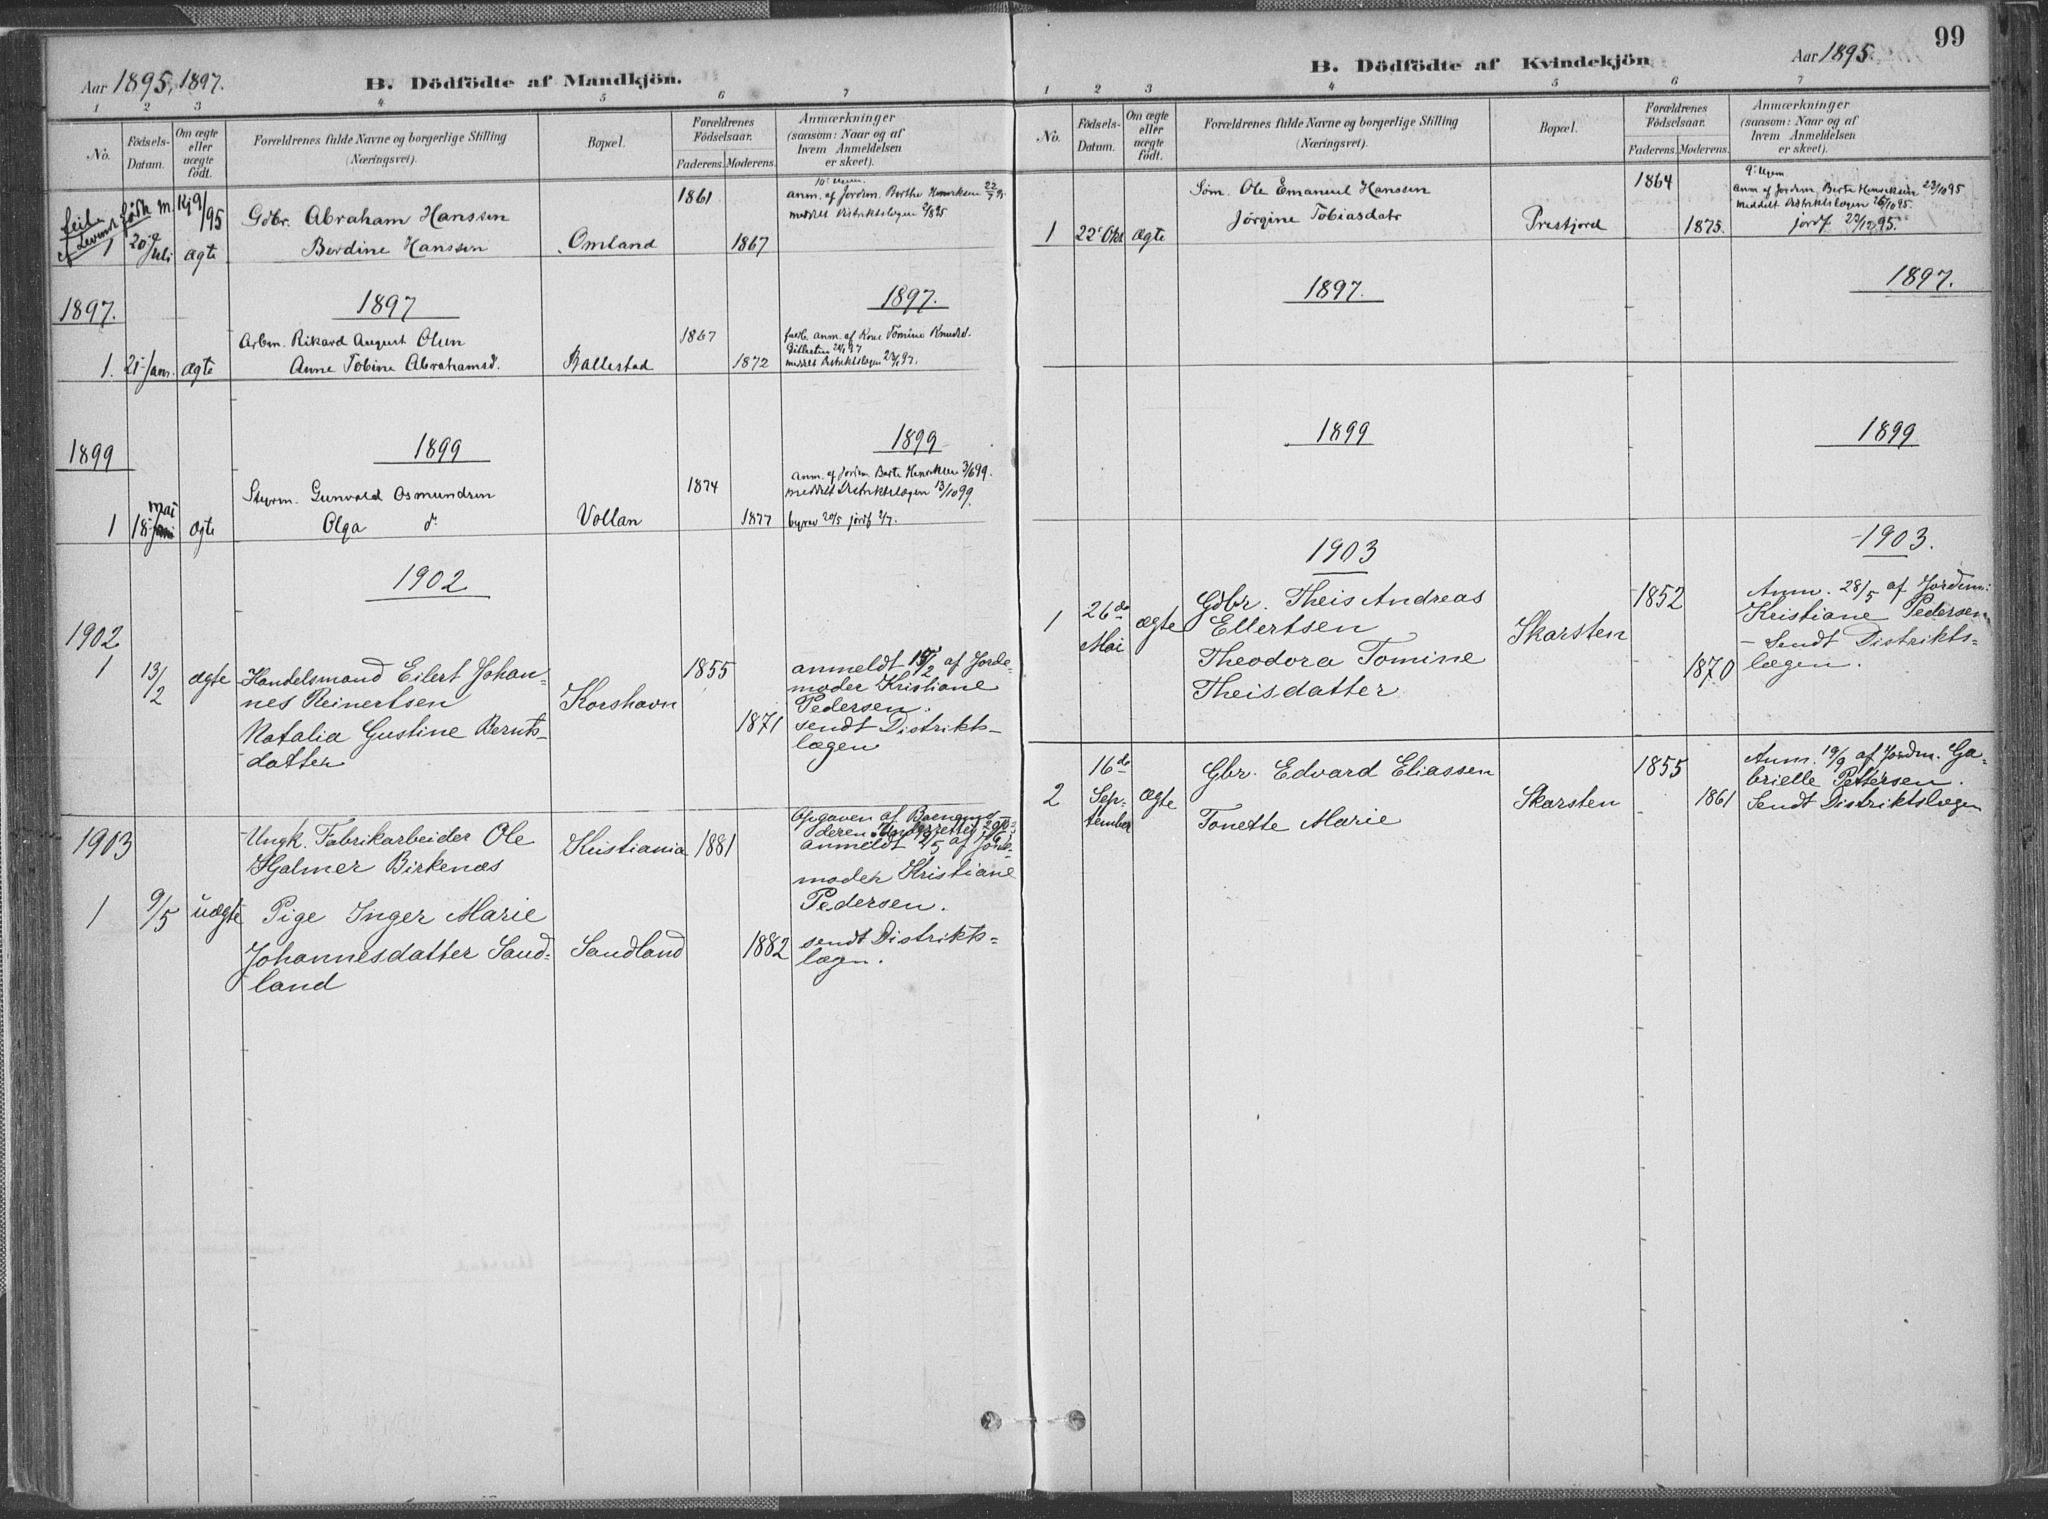 Aar 1895, 1897.
B. Dödfödte af Mandkjön.
1 2 3 4 5 6 7
No.
Födsels-
Datum.
Om ægte
eller
uægte
födt.
Forældrenes fulde Navne og borgerlige Stilling
(Næringsvei).
Bopæl.
Forældrenes
Födselsaar.
Faderens. Moderens.
Anmærkninger
(saasom: Naar og af
hvem Anmeldelsen
er skeet).
feil
Levende født
Gdbr. Abraham Hanssen
1861
anm. af Jordm. Berthe Henriksen 22/7 95
meddelt Distriktslægen 2/8 95
1 20 Juli ægte Berdine Hanssen Omland 1867
1897. 1897 1897.
Arbm. Rikard August Olsen
1867
anm. af Kone Tomine Knudsd.
1. 21 Jan. ægte Anne Tobine Abrahamsd. Ballestad 1872
meddelt Distriktslægen
1899 1899 1899
Styrm. Gunvald Osmundsen
1874
anm. af Jordm Berte Henriksen 3/6 99.
meddelt Distriktslægen 13/10 99.
mai
1 18 juni ægte Olga d. Vollan 1877 begrav 20/5 jordf 2/7.
1902
1902
1 13/2 ægte Handelsmand Eilert Johan-
nes Reinertsen
Natalia Gustine Bernts-
datter
Korshavn 1855 1871
anmeldt 15/2 af Jorde-
moder Kristiane
Pedersen.
sendt Distrikts-
lægen
1903
Ungk. Fabrikarbeider Ole
Hjalmer Birkenæs
Kristiania 1881
Opgaven af Barnemo-
deren.
anmeldt 12/5 af Jorde-
moder Kristiane
Pedersen.
1 9/5 uægte Pige Inger Marie
Johannesdatter Sand-
land
Sandland 1882
sendt Distrikts-
lægen.
99
Aar 1895.
B. Dödfödte af Kvindekjön
1 2 3 4 5 6 7
No.
Födsels-
Datum.
Om ægte
eller
uægte
födt.
Forældrenes fulde Navne og borgerlige Stilling
(Næringsvei).
Bopæl.
Forældrenes
Födselsaar.
Faderens. Moderens.
Anmærkninger
(saasom: Naar og af
hvem Anmeldelsen
er skeet).
Søm. Ole Emanuel Hanssen
1864
anm af Jordm. Berte Henriksen 23/10 95
meddelt Distriktslægen 26/10 95.
1 22 Okt ægte Jörgine Tobiasdatr Prestjord 1875. jordf 22/12 95.
1897. 1897.
1899 1899
1903 1903.
1 26de
Mai
ægte
Gdbr. Theis Andreas
Ellertsen
Theodora Tomine
Theisdatter
Skarsten 1852 1870
Anm. 28/5 af Jordem.
Kristiane Pedersen
- Sendt Distrikts-
lægen.
2 16de
Sep-
tember
ægte
Gbr. Edvard Eliassen
Tonette Marie
Skarsten 1855 1861
Anm. 19/9 af Jordm. Ga-
brielle Pettersen.
Sendt Distriktslægen